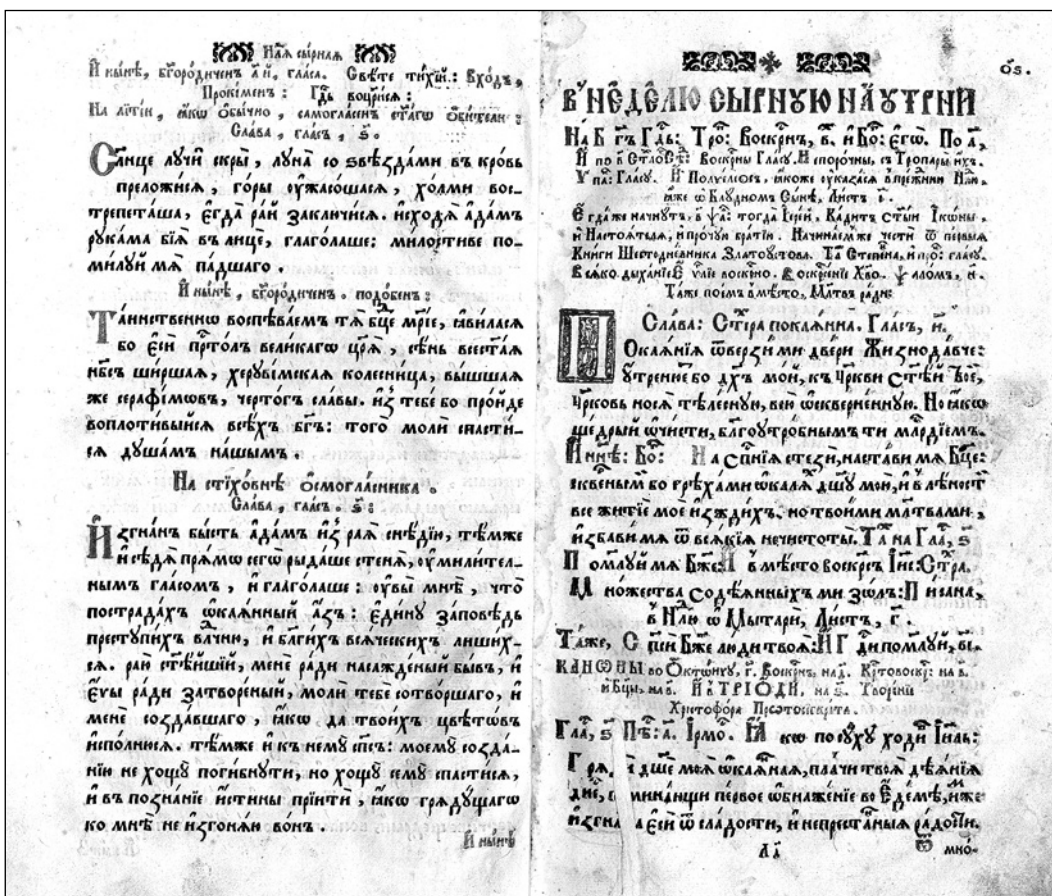 Нл҃я сырная
И҆ нн҃ѣ, бг҃ородиченъ а҃й, гласа. Свѣте тихій: Входъ,
Прокіменъ: Гд҇ь воцр҃ися:
На литіи, ꙗ҆кѡ ѻ҆бычно, самогласенъ ст҃агѡ ѻ҆бители:
Слава, гласъ, ѕ҃.
Слнце лучи скры, луна со ѕвѣздами въ кровь
преложися, горы ᲂу҆жасошася, холми вос-
трепеташа, є҆гда рай заключися. и҆сходя а҆дамъ
рꙋкама бїѧ въ лице, глаголаше: милостиве по-
милуй мѧ падшаго.
И҆ нынѣ, бг҃ородиченъ. подобенъ:
Таинственнѡ воспѣваемъ тѧ бц҃е мр҃іе, ꙗ҆вилася
бо є҆си прⷭ҇толъ великагѡ цр҃ѧ, сѣнь всест҃ая
нб҃съ ширшая, херувімская колесница, вышшая
же серафімѡвъ, чертогъ славы. и҆з̾ тебе бо пройде
воплотивыйся всѣхъ бг҃ъ: того моли спасти-
сѧ душамъ нашымъ.
На стіховнѣ ѻ҆смогласника.
Слава, гласъ. ѕ҃:
И҆згнанъ бысть а҆дамъ и҆з̾ рая снѣдїю, тѣмже
и҆ сѣдѧ прямѡ сегѡ рыдаше стенѧ, ᲂу҆милител-
нымъ гласомъ, и҆ глаголаше: ᲂу҆вы мнѣ, что
пострадахъ ѡ҆каянный а҆зъ: є҆дину заповѣдь
преступихъ влⷣчню, и҆ благихъ всяческихъ лиших-
сѧ. раю ст҃ѣйшій, мене ради насажденый бывъ, и҆
є҆ѵы ради затвореный, моли тебе сотворшаго, и҆
мене создавшаго, ꙗ҆кѡ да твоихъ цвѣтѡвъ
и҆сполнюся. тѣмже и҆ къ немꙋ сп҃съ: моемꙋ созда-
нїю не хощꙋ погибнути, но хощꙋ семꙋ спастися,
и҆ въ познанїе и҆стины прїити, ꙗ҆кѡ грядꙋщагѡ
ко мнѣ не и҆згоняю вонъ
И҆ нынѣ
ѻ҃ѕ.
В̾ НЕДѢЛЮ СЫРНꙊЮ НА ᲂУТРНИ
На Б҃гъ Гдⷭ҇ь: Тро: Воскрⷭ҇нъ, в҃. и҆ Бо: є҆гѡ. По а҃,
и҆ по в҃ Стлⷪ҇сѣ: Воскрⷭ҇ны Гласу. Непорочны, съ Тропары и҆хъ.
Ѵпа: Гласу. И҆ Полѵелеосъ, ꙗ҆коже ᲂу҆казася в̾прежнии Нлⷣю,
ꙗ҆же ѡ҆ Блудномъ Сынѣ, Листъ і҃.
Є҆гдаже начнутъ, в̾ ѱа: тогда І҆ерей, Кадитъ ст҃ыи І҆кѡны,
и҆ Настоятеля, и҆ прочую братїю. Начинаемже чести ѿ первыя
Книги Шестодневника Златоустова. Та Степена, и҆ про: гласу.
Всяко дыханїе Є҆ѵⷢ҇лїе воскрⷭ҇но. Воскрⷭ҇нїе Хв҃о. Ѱаломъ, н҃.
Таже поемъ вмѣсто, Мл҃твъ ради:
Слава: Стⷯира покаянна. Гласъ, и҃.
Покаянїя ѿверзи ми двери Жизнодавче:
ᲂутренюетбо дх҃ъ мой, къ Цр҃кви ст҃ѣй Твоей,
Цр҃ковь нося тѣлесную, всю ѡ҆скверненную. Но ꙗ҆кѡ
щедрый ѡ҆чисти, благоутробнымъ ти млⷭ҇рдїемъ.
И҆ нн҃ѣ: Бо: На сп҃нїя стези, настави мя Бц҃е:
сквеными бо грѣхами ѡ҆калях дш҃у мою, и҆ в̾лѣности
все житїе мое и҆ждихъ. но твоими мл҃твами,
и҆збави мя ѿ всякїя нечистоты. Та на Гла, ѕ҃
Помилуй мя Бж҃е: И҆ вмѣсто воскресъ І҆ис҃: Стⷯра.
Множества содѣянныхъ ми золъ: Писана,
в̾ Нлⷣю ѡ҆ Мытари, Листъ, г҃.
Таже, Сп҃си Бж҃е люди твоя: И҆ Гдⷭ҇и помилуй, в҃і.
КАНѠНЫ во Ѻ҆ктѡиху, г҃. Воскрⷭ҇нъ, на д҃. Крⷭ҇товоскрⷭ҇: на в҃.
и҆ Бц҃ы, на в҃. И҆ в̾ ТРІѠДИ, на ѕ҃. Творенїе
Христофора Прѡтосигкрита.
Гла, ѕ҃ Пѣ: а҃. І҆рмо. Ꙗ҆кѡ посуху ходи І҆иль:
Гряди дш҃е моя ѡ҆каянная, плачи твоя дѣянїя
днⷭ҇ь, поминающи первое ѡ҆бнаженїе во Є҆демѣ, и҆мже
и҆згнана є҆си ѿ сладости, и҆ непрестанныя радости.
Аі
ѿ мно-